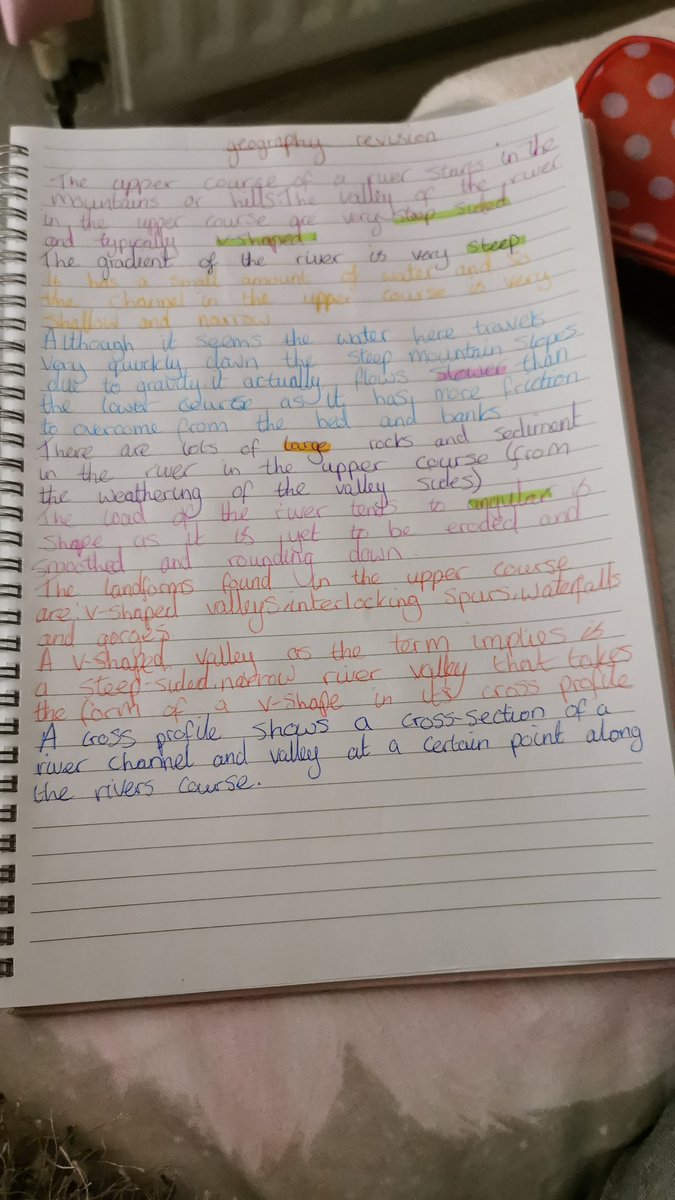 geography revision
The upper course of a river starts in the
mountains or hills.The valley of the river
in the upper course are very steep sided
and typically v-shaped
The gradient of the river is very steep
It has a small amount of water and so
the channel in the upper course is very
shallow and narrow
Although it seems the water here travels
very quickly down the steep mountain slopes
due to gravity,it actually flows slower than
the lower course as it has more friction
to overcome from the bed and banks
There are lots of large rocks and sediment
in the river in the upper course (from
the weathering of the valley sides)
The load of the river tents to angular is
shape as it is yet to be eroded and
smoothed and rounding down.
The landforms found in the upper course
are:v-shaped valleys,interlocking spurs,waterfalls
and gorges
A v-shaped valley as the term implies is
a steep-sided,narrow river valley that takes
the form of a v-shape in its cross profile
A cross profile shows a cross-section of a
river channel and valley at a certain point along
the rivers course.